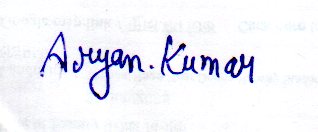 Aryan. Kumar